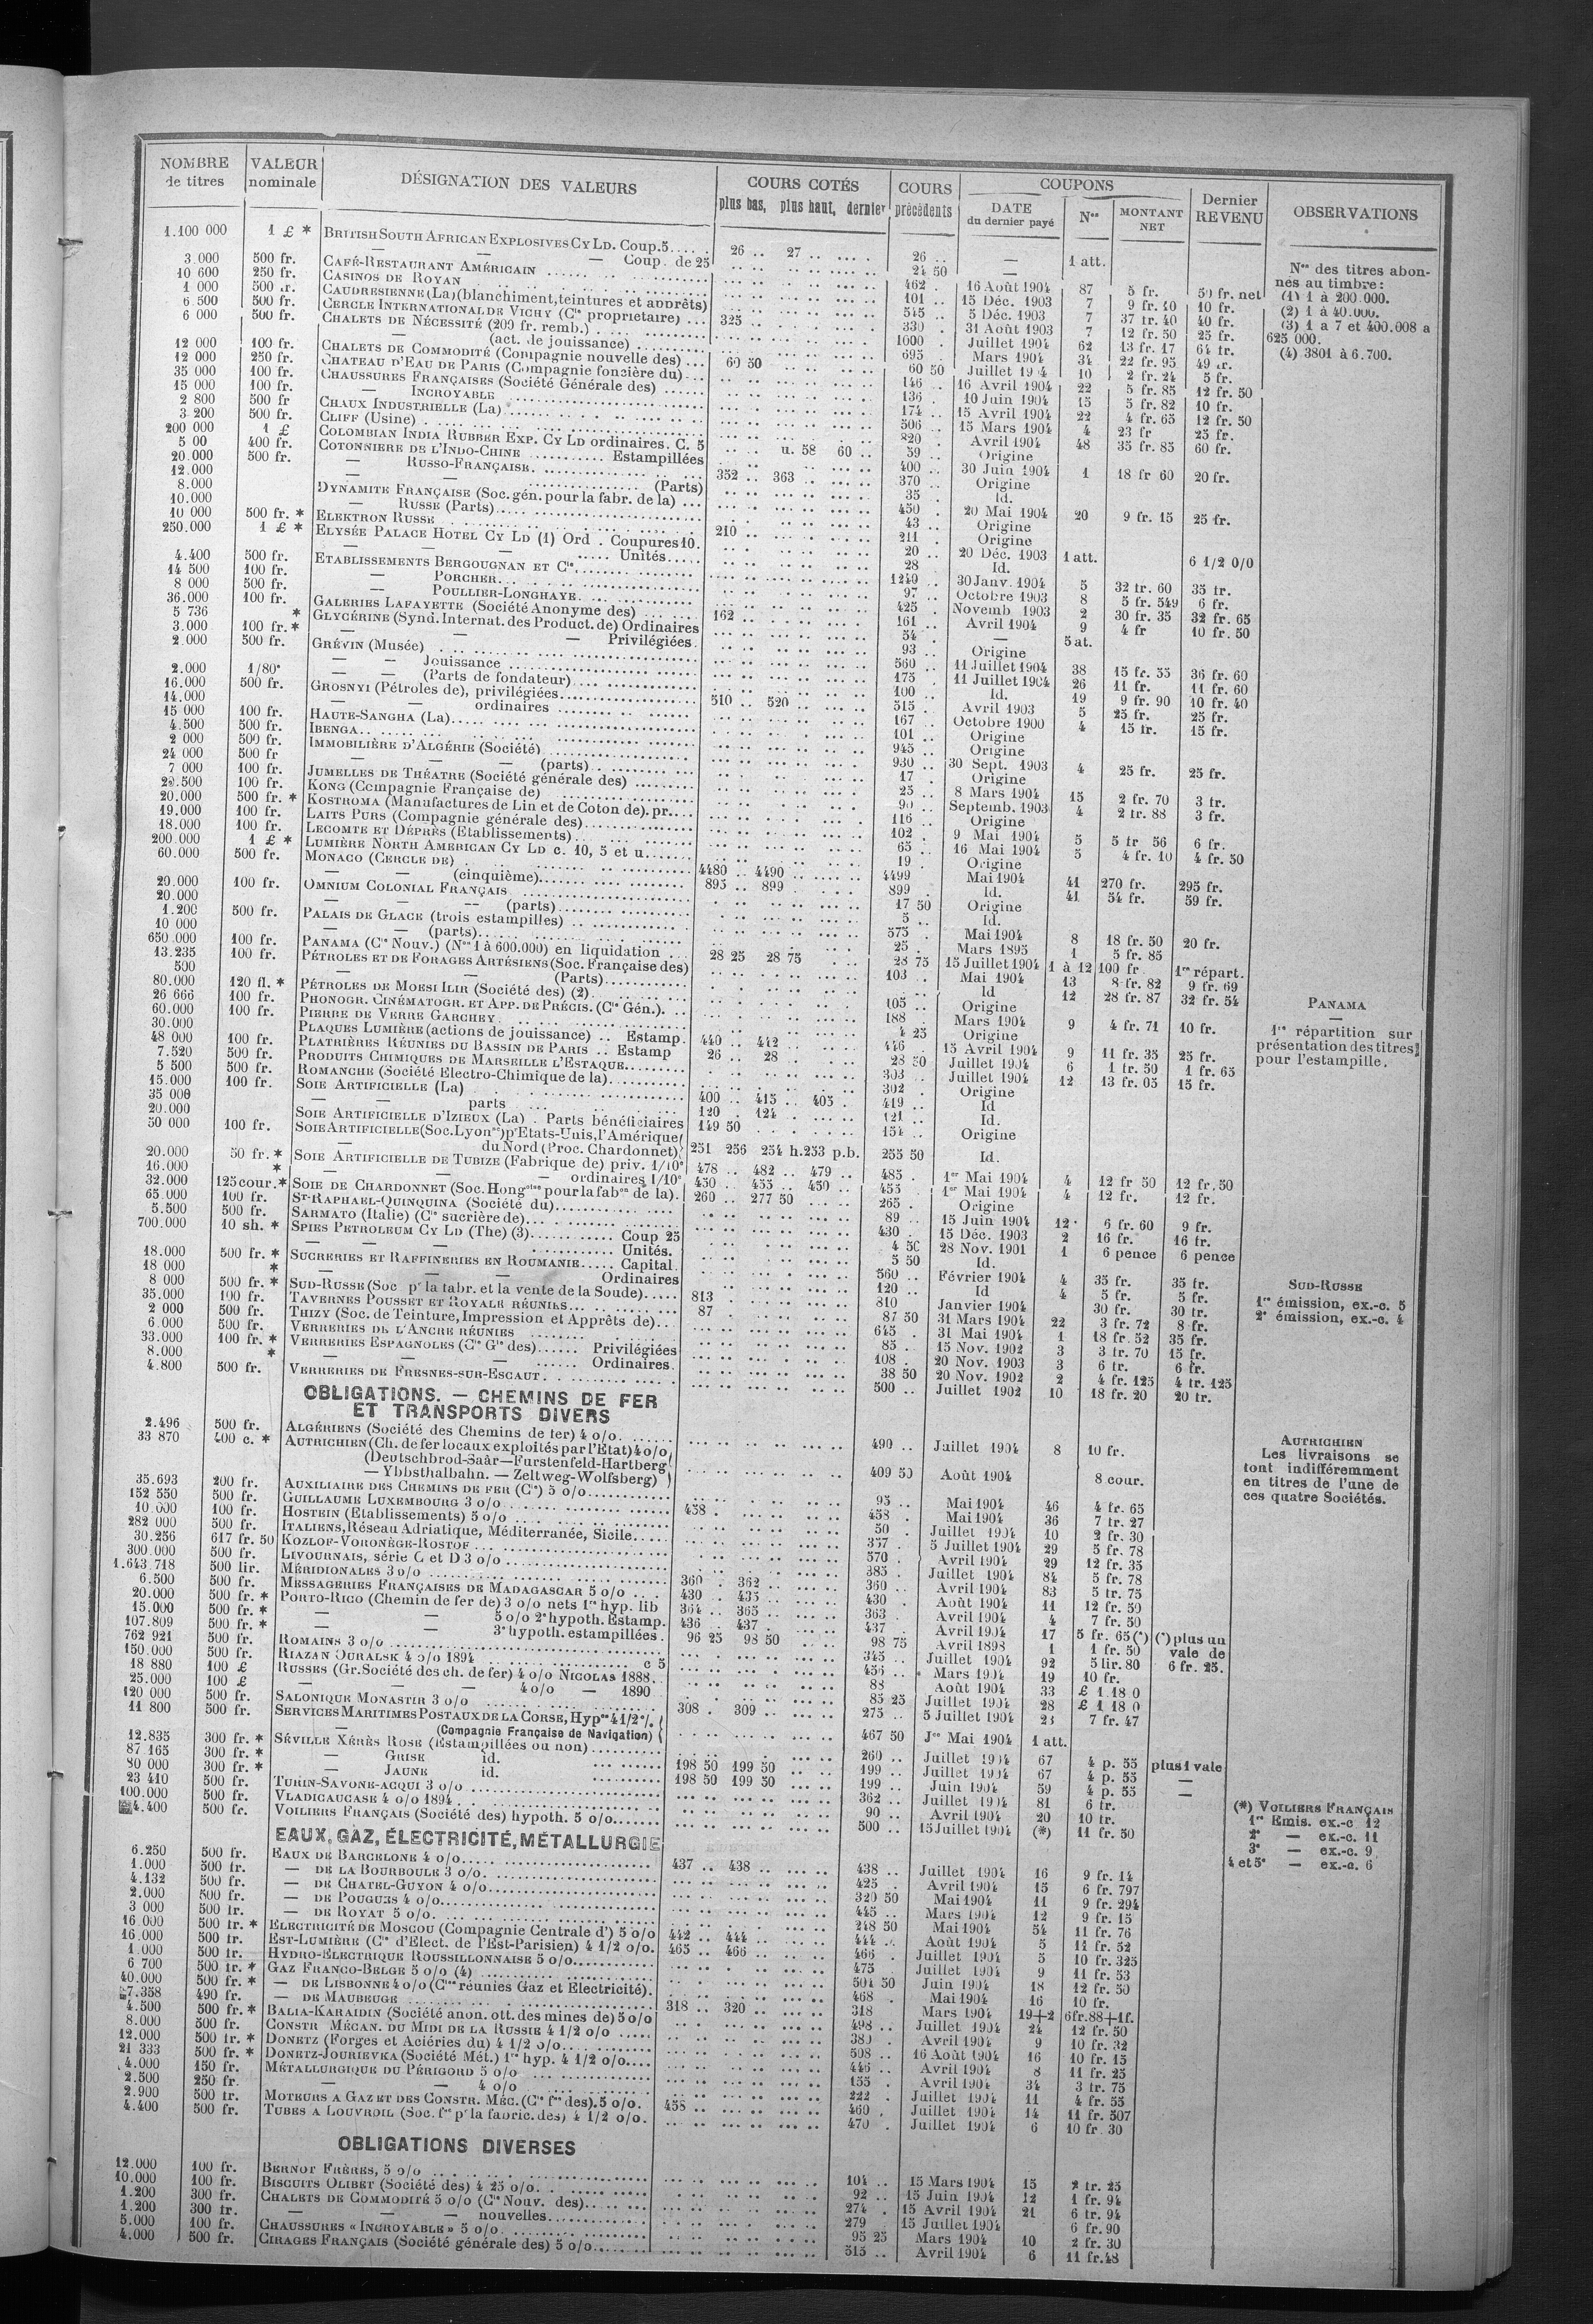 NOMBRE de titres | VALEUR nominale | DÉSIGNATION DES VALEURS | COURS COTÉS plus bas, plus haut, dernier | COURS précédents | COUPONS DATE du dernier payé | Nos | MONTANT NET | Dernier REVENU | OBSERVATIONS
1.100 000 1 £ * BRITISH SOUTH AFRICAN EXPLOSIVES CY LD. Coup. 5 26 .. 27 .. 26 .. — 1 att.
— — Coup. de 25 24 50 —
3.000 500 fr. CAFÉ-RESTAURANT AMÉRICAIN 462 . 16 Août 1904 87 5 fr. 50 fr. net
10 600 250 fr. CASINOS DE ROYAN 101 .. 15 Déc. 1903 7 9 fr. 40 10 fr.
1 000 500 fr. CAUDRESIENNE (La) (blanchiment, teintures et apprêts) 545 .. 5 Déc. 1903 7 37 fr. 40 40 fr.
6.500 500 fr. CERCLE INTERNATIONAL DE VICHY (Cie propriétaire) 325 .. 330 . 31 Août 1903 7 12 fr. 50 25 fr.
6 000 500 fr. CHALETS DE NÉCESSITÉ (200 fr. remb.) 1000 . Juillet 1904 62 13 fr. 17 64 fr.
— (act. de jouissance) 695 . Mars 1904 34 22 fr. 95 49 fr.
12 000 100 fr. CHALETS DE COMMODITÉ (Compagnie nouvelle des) 60 50 60 50 Juillet 1904 10 2 fr. 24 5 fr.
12 000 250 fr. CHATEAU D'EAU DE PARIS (Compagnie foncière du) 146 . 16 Avril 1904 22 5 fr. 85 12 fr. 50
35 000 100 fr. CHAUSSURES FRANÇAISES (Société Générale des) 136 . 10 Juin 1904 15 5 fr. 82 10 fr.
15 000 100 fr. — INCROYABLE 174 .. 15 Avril 1904 22 4 fr. 65 12 fr. 50
2 800 500 fr CHAUX INDUSTRIELLE (La) 506 .. 15 Mars 1904 4 23 fr 25 fr.
3 200 500 fr. CLIFF (Usine) 820 . Avril 1904 48 35 fr. 85 60 fr.
200 000 1 £ COLOMBIAN INDIA RUBBER EXP. CY LD ordinaires. C. 5 u. 58 60 .. 59 .. Origine
5 00 400 fr. COTONNIERE DE L'INDO-CHINE Estampillées 400 .. 30 Juin 1904 1 18 fr 60 20 fr.
20.000 500 fr. — RUSSO-FRANÇAISE 352 .. 363 .. 370 .. Origine
12.000 — (Parts) 35 . Id.
8.000 DYNAMITE FRANÇAISE (Soc. gén. pour la fabr. de la) 450 . 20 Mai 1904 20 9 fr. 15 25 fr.
10.000 — RUSSE (Parts) 43 .. Origine
10 000 500 fr. * ELEKTRON RUSSE 210 .. 211 . Origine
250.000 1 £ * ELYSÉE PALACE HOTEL CY LD (1) Ord . Coupures 10. 20 .. 20 Déc. 1903 1 att. 6 1/2 0/0
— — Unités 28 Id.
4.400 500 fr. ETABLISSEMENTS BERGOUGNAN ET Cie 1240 .. 30 Janv. 1904 5 32 fr. 60 35 fr.
14 500 100 fr. — PORCHER 97 .. Octobre 1903 8 5 fr. 549 6 fr.
8 000 500 fr. — POULLIER-LONGHAYE 425 . Novemb 1903 2 30 fr. 35 32 fr. 65
36.000 100 fr. GALERIES LAFAYETTE (Société Anonyme des) 162 .. 161 . Avril 1904 9 4 fr 10 fr. 50
5 736 * GLYCÉRINE (Synd. Internat. des Product. de) Ordinaires 54 . — 5 at.
3.000 100 fr. * — — — Privilégiées 93 .. Origine
2.000 500 fr. GRÉVIN (Musée) 560 .. 11 Juillet 1904 38 15 fr. 55 36 fr. 60
— — Jouissance 175 . 11 Juillet 1904 26 11 fr. 11 fr. 60
2.000 1/80e — — (Parts de fondateur) 100 .. Id. 19 9 fr. 90 10 fr. 40
16.000 500 fr. GROSNYI (Pétroles de), privilégiées 510 .. 520 .. 515 . Avril 1903 5 25 fr. 25 fr.
14.000 — ordinaires 167 . Octobre 1900 4 15 fr. 15 fr.
15 000 100 fr. HAUTE-SANGHA (La) 101 .. Origine
4.500 500 fr. IBENGA 945 .. Origine
2 000 500 fr. IMMOBILIÈRE D'ALGÉRIE (Société) 930 .. 30 Sept. 1903 4 25 fr. 25 fr.
24 000 500 fr — — — (parts) 17 . Origine
7 000 100 fr. JUMELLES DE THÉATRE (Société générale des) 25 .. 8 Mars 1904 15 2 fr. 70 3 fr.
100 fr. KONG (Compagnie Française de) 90 .. Septemb. 1903 4 2 fr. 88 3 fr.
20.000 500 fr. * KOSTROMA (Manufactures de Lin et de Coton de). pr. 116 .. Origine
19.000 100 fr. LAITS PURS (Compagnie générale des) 102 . 9 Mai 1904 5 5 fr 56 6 fr.
18.000 100 fr. LECOMTE ET DÉPRÈS (Etablissements) 65 .. 16 Mai 1904 5 4 fr. 10 4 fr. 50
200.000 1 £ * LUMIÈRE NORTH AMERICAN CY LD c. 10, 5 et u. 19 . Origine
60.000 500 fr. MONACO (CERCLE DE) 4480 .. 4490 .. 4499 Mai 1904 41 270 fr. 295 fr.
— — (cinquième) 895 .. 899 . 899 . Id. 41 54 fr. 59 fr.
20.000 100 fr. OMNIUM COLONIAL FRANÇAIS 17 50 Origine
20.000 — — (parts) 5 .. Id.
1.200 500 fr. PALAIS DE GLACE (trois estampilles) 575 .. Mai 1904 8 18 fr. 50 20 fr.
10 000 — — (parts) 25 . Mars 1895 1 5 fr. 85
650.000 100 fr. PANAMA (Cie Nouv.) (Nos 1 à 600.000) en liquidation 28 25 28 75 28 75 15 Juillet 1904 1 à 12 100 fr 1re répart.
13.235 100 fr. PÉTROLES ET DE FORAGES ARTÉSIENS (Soc. Française des) 103 . Mai 1904 13 8 fr. 82 9 fr. 69
500 — — (Parts) .. Id 12 28 fr. 87 32 fr. 54
80.000 120 fl. * PÉTROLES DE MOESI ILIR (Société des) (2) 105 .. Origine
26 666 100 fr. PHONOGR. CINÉMATOGR. ET APP. DE PRÉCIS. (Cie Gén.) 188 . Mars 1904 9 4 fr. 71 10 fr.
60.000 100 fr. PIERRE DE VERRE GARCHEY 4 25 Origine
30.000 PLAQUES LUMIÈRE (actions de jouissance) Estamp. 440 .. 442 .. 446 . 15 Avril 1904 9 11 fr. 35 25 fr.
48 000 100 fr. PLATRIÈRES RÉUNIES DU BASSIN DE PARIS Estamp 26 .. 28 . 28 50 Juillet 1904 6 1 fr. 50 1 fr. 65
7.520 500 fr. PRODUITS CHIMIQUES DE MARSEILLE L'ESTAQUE 303 .. Juillet 1904 12 13 fr. 05 15 fr.
5 500 500 fr. ROMANCHE (Société Electro-Chimique de la) 302 . Origine
15.000 100 fr. SOIE ARTIFICIELLE (La) 400 .. 415 .. 405 . 419 .. Id
35 000 — — parts 120 . 124 . 121 . Id.
20.000 SOIE ARTIFICIELLE D'IZIEUX (La) . Parts bénéficiaires 149 50 154 .. Origine
50 000 100 fr. SOIE ARTIFICIELLE (Soc. Lyonse) pr Etats-Unis, l'Amérique
du Nord (Proc. Chardonnet) 251 256 254 h. 253 p.b. 255 50 Id.
20.000 50 fr. * SOIE ARTIFICIELLE DE TUBIZE (Fabrique de) priv. 1/10e 478 .. 482 .. 479 .. 485 . 1er Mai 1904 4 12 fr 50 12 fr. 50
16.000 * — — — ordinaires 1/10e 450 .. 455 .. 450 .. 455 . 1er Mai 1904 4 12 fr. 12 fr.
32.000 125 cour. * SOIE DE CHARDONNET (Soc. Hongoise pour la fabon de la) 260 .. 277 50 265 . Origine
65 000 100 fr. ST-RAPHAEL-QUINQUINA (Société du) 89 .. 15 Juin 1904 12 6 fr. 60 9 fr.
5.500 500 fr. SARMATO (Italie) (Cie sucrière de) 430 . 15 Déc. 1903 2 16 fr. 16 fr.
700.000 10 sh. * SPIES PETROLEUM CY LD (The) (3) Coup 25 4 50 28 Nov. 1901 1 6 pence 6 pence
— — Unités. 5 50 Id.
18.000 500 fr. * SUCRERIES ET RAFFINERIES EN ROUMANIE Capital 560 .. Février 1904 4 35 fr. 35 fr.
18 000 * — — Ordinaires 120 .. Id 4 5 fr. 5 fr.
8 000 500 fr. * SUD-RUSSE (Soc pr la fabr. et la vente de la Soude) 813 810 Janvier 1904 30 fr. 30 fr.
35.000 100 fr. TAVERNES POUSSET ET ROYALE RÉUNIES 87 87 50 31 Mars 1904 22 3 fr. 72 8 fr.
2 000 500 fr. THIZY (Soc. de Teinture, Impression et Apprêts de) 645 . 31 Mai 1904 1 18 fr. 52 35 fr.
6.000 500 fr. VERRERIES DE L'ANCRE RÉUNIES 85 . 15 Nov. 1902 3 3 fr. 70 15 fr.
33.000 100 fr. * VERRERIES ESPAGNOLES (Cie Gle des) Privilégiées 108 . 20 Nov. 1903 3 6 fr. 6 fr.
8.000 * — — Ordinaires 38 50 20 Nov. 1902 2 4 fr. 125 4 fr. 125
4.800 500 fr. VERRERIES DE FRESNES-SUR-ESCAUT 500 .. Juillet 1902 10 18 fr. 20 20 fr.
OBLIGATIONS. — CHEMINS DE FER
ET TRANSPORTS DIVERS
2.496 500 fr. ALGÉRIENS (Société des Chemins de fer) 4 o/o 490 .. Juillet 1904 8 10 fr.
33 870 400 c. * AUTRICHIEN (Ch. de fer locaux exploités par l'Etat) 4 o/o
(Deutschbrod-Saâr—Furstenfeld-Hartberg
— Ybbsthalbahn. — Zeltweg-Wolfsberg) 409 50 Août 1904 8 cour.
35.693 200 fr. AUXILIAIRE DES CHEMINS DE FER (Cie) 5 o/o 95 .. Mai 1904 46 4 fr. 65
152 550 500 fr. GUILLAUME LUXEMBOURG 3 o/o 458 . 458 . Mai 1904 36 7 fr. 27
10.000 100 fr. HOSTEIN (Etablissements) 5 o/o 50 . Juillet 1904 10 2 fr. 30
282 000 500 fr. ITALIENS, Réseau Adriatique, Méditerranée, Sicile 357 . 5 Juillet 1904 29 5 fr. 78
30.256 617 fr. 50 KOZLOF-VORONÈGE-ROSTOF 570 . Avril 1904 29 12 fr. 35
300.000 500 fr. LIVOURNAIS, série C et D 3 o/o 385 . Juillet 1904 84 5 fr. 78
1.643.718 500 lir. MÉRIDIONALES 3 o/o 360 . 362 .. 360 .. Avril 1904 83 5 fr. 75
6.500 500 fr. MESSAGERIES FRANÇAISES DE MADAGASCAR 5 o/o 430 .. 435 .. 430 . Août 1904 11 12 fr. 50
20.000 500 fr. * PORTO-RICO (Chemin de fer de) 3 o/o nets 1re hyp. lib 364 .. 365 .. 363 . Avril 1904 4 7 fr. 50
15.000 500 fr. * — — 5 o/o 2e hypoth. Estamp. 436 .. 437 . 437 . Avril 1904 17 5 fr. 65 (*) (*) plus un
107.809 500 fr. * — 3e hypoth. estampillées 96 25 98 50 98 75 Avril 1898 1 1 fr. 50 vale de
762 921 500 fr. ROMAINS 3 o/o 345 .. Juillet 1904 92 5 lir. 80 6 fr. 25.
150.000 500 fr. RIAZAN OURALSK 4 o/o 1894 c 5 456 .. Mars 1904 19 10 fr.
18 880 100 £ RUSSES (Gr. Société des ch. de fer) 4 o/o NICOLAS 1888. 88 Août 1904 33 £ 1.18 0
25.000 100 £ — — 4 o/o — 1890 85 25 Juillet 1904 28 £ 1 18 0
120 000 500 fr. SALONIQUE MONASTIR 3 o/o 308 . 309 .. 275 .. 5 Juillet 1904 23 7 fr. 47
11 800 500 fr. SERVICES MARITIMES POSTAUX DE LA CORSE, Hypre 4 1/2 %
— (Compagnie Française de Navigation) 467 50 Mai 1904 1 att.
12.835 300 fr. * SÉVILLE XÉRÈS ROSE (Estampillées ou non) 260 .. Juillet 1904 67 4 p. 55 plus 1 vale
87 165 300 fr. * — GRISE id. 198 50 199 50 199 .. Juillet 1904 67 4 p. 55 —
80 000 300 fr. * — JAUNE id. 198 50 199 50 199 .. Juin 1904 59 4 p. 55 —
23 410 500 fr. TURIN-SAVONE-ACQUI 3 o/o 362 .. Juillet 1904 81 6 fr.
100.000 500 fr. VLADICAUCASE 4 o/o 1894 90 .. Avril 1904 20 10 fr.
4.400 500 fr. VOILIERS FRANÇAIS (Société des) hypoth. 5 o/o 500 .. 15 Juillet 1904 (*) 11 fr. 50
EAUX, GAZ, ÉLECTRICITÉ, MÉTALLURGIE
6.250 500 fr. EAUX DE BARCELONE 4 o/o 437 .. 438 .. 438 .. Juillet 1904 16 9 fr. 14
1.000 500 fr. — DE LA BOURBOULE 3 o/o 425 .. Avril 1904 15 6 fr. 797
4.132 500 fr. — DE CHATEL-GUYON 4 o/o 320 50 Mai 1904 11 9 fr. 294
2.000 500 fr. — DE POUGUES 4 o/o 445 .. Mars 1904 12 9 fr. 15
3 000 500 fr. — DE ROYAT 5 o/o 248 50 Mai 1904 54 11 fr. 76
16.000 500 fr. * ELECTRICITÉ DE MOSCOU (Compagnie Centrale d') 5 o/o 442 .. 444 .. 444 .. Août 1904 5 11 fr. 52
16.000 500 fr. EST-LUMIÈRE (Cie d'Elect. de l'Est-Parisien) 4 1/2 o/o. 465 .. 466 .. 466 . Juillet 1904 5 10 fr. 325
1.000 500 fr. HYDRO-ELECTRIQUE ROUSSILLONNAISE 5 o/o 475 . Juillet 1904 9 11 fr. 53
6 700 500 fr. * GAZ FRANCO-BELGE 5 o/o (4) 504 50 Juin 1904 18 12 fr. 50
40.000 500 fr. * — DE LISBONNE 4 o/o (Cies réunies Gaz et Electricité). 468 . Mai 1904 16 10 fr.
7.358 490 fr. — DE MAUBEUGE 318 .. 320 .. 318 Mars 1904 19+2 6fr.88+1f.
4.500 500 fr. * BALIA-KARAIDIN (Société anon. ott. des mines de) 5 o/o 498 .. Juillet 1904 24 12 fr. 50
8.000 500 fr. CONSTR MÉCAN. DU MIDI DE LA RUSSIE 4 1/2 o/o 380 . Avril 1904 9 10 fr. 32
12.000 500 fr. * DONETZ (Forges et Aciéries du) 4 1/2 o/o 508 .. 16 Août 1904 16 10 fr. 15
21 333 500 fr. * DONETZ-JOURIEVKA (Société Mét.) 1re hyp. 4 1/2 o/o 446 .. Avril 1904 8 11 fr. 25
4.000 150 fr. MÉTALLURGIQUE DU PÉRIGORD 5 o/o 155 . Avril 1904 34 3 fr. 75
2.500 250 fr. — — 4 o/o 222 . Juillet 1904 11 4 fr. 55
2.900 500 fr. MOTEURS A GAZ ET DES CONSTR. MÉC. (Cie fse des). 5 o/o. 458 .. 460 . Juillet 1904 14 11 fr. 507
4.400 500 fr. TUBES A LOUVROIL (Soc. fse pr la fabric. des) 4 1/2 o/o. 470 . Juillet 1904 6 10 fr 30
OBLIGATIONS DIVERSES
12.000 100 fr. BERNOT FRÈRES, 5 o/o 104 .. 15 Mars 1904 15 2 fr. 25
10.000 100 fr. BISCUITS OLIBET (Société des) 4 25 o/o 92 .. 15 Juin 1904 12 1 fr. 94
1.200 300 fr. CHALETS DE COMMODITÉ 5 o/o (Cie Nouv. des) 274 . 15 Avril 1904 21 6 fr. 94
1.200 300 fr. — — nouvelles 279 . 15 Juillet 1904 6 fr. 90
5.000 100 fr. CHAUSSURES « INCROYABLE » 5 o/o 95 25 Mars 1904 10 2 fr. 30
4.000 500 fr. CIRAGES FRANÇAIS (Société générale des) 5 o/o 515 .. Avril 1904 6 11 fr.48
Nos des titres abonnés au timbre:
(1) 1 à 200.000.
(2) 1 à 40.000.
(3) 1 a 7 et 400.008 a
625 000.
(4) 3801 à 6.700.
PANAMA
—
1re répartition sur
présentation des titres
pour l'estampille.
SUD-RUSSE
1re émission, ex-c. 5
2e émission, ex-c. 4
AUTRICHIEN
Les livraisons se
font indifféremment
en titres de l'une de
ces quatre Sociétés.
(*) VOILIERS FRANÇAIS
1re Emis. ex-c 12
2e — ex.-c. 11
3e — ex.-c. 9
4 et 5e — ex.-c. 6